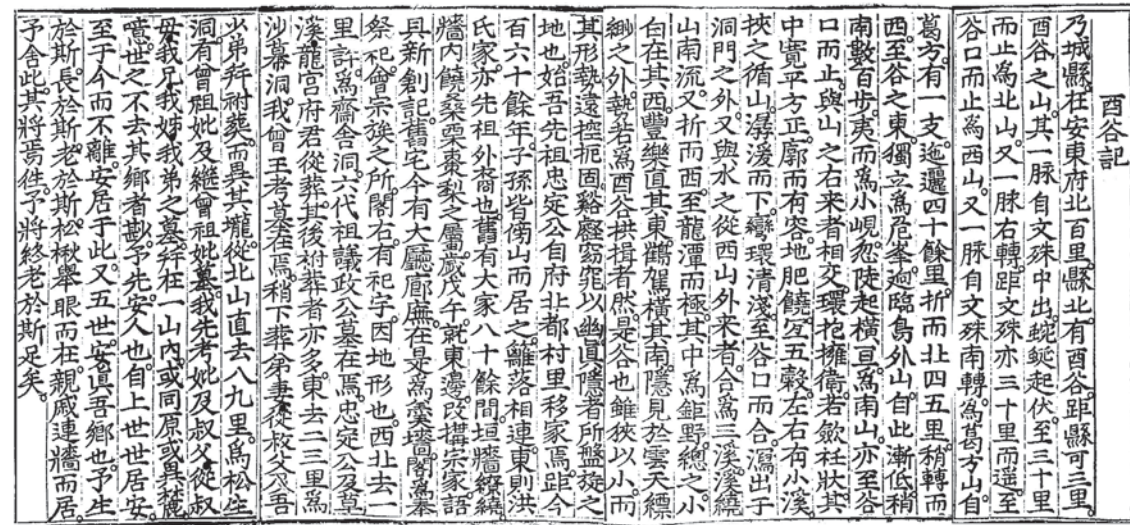 酉谷記
乃城縣在安東府北百里縣北有酉谷距縣可三里
酉谷之山其一脉自文殊中出蜿蜒起伏至三十里
而止爲北山又一脉右轉距文殊亦三十里而遥至
谷口而止爲西山又一脉自文殊南轉爲葛方山自
葛方有一支迤邐四十餘里折而北四五里稍轉而
西至谷之東獨立爲卮峯逈臨鳥外山自此漸低稍
南數百步夷而爲小峴忽陡起橫亘爲南山亦至谷
口而止與山之右來者相交環抱擁衛若歛衽狀其
中寛平方正廓而有容地肥饒宜五穀左右有小溪
挾之循山潺湲而下彎環清淺至谷口而合瀉出于
洞門之外又與水之從西山外来者合爲三溪溪繞
山南流又折而西至龍潭而極其中爲鉅野總之小
白在其西豐樂直其東鶴駕橫其南隱見於雲天縹
緲之外勢若爲酉谷拱揖者然是谷也雖狹以小而
其形勢遠控扼固谿壑窈窕以幽眞隱者所盤旋之
地也始吾先祖忠定公自府北都村里移家焉距今
百六十餘年子孫皆傍山而居之籬落相連東則洪
氏家亦先祖外裔也舊有大家八十餘間垣墻繚繞
墻内饒桑栗棗梨之屬歲戊午就東邊改搆宗家語
具新創記舊宅今有大廳廊廡在是爲羹墻閣爲奉
祭祀會宗族之所閣右有祀字因地形也西北去二
里許爲齋舎洞六代祖議政公墓在焉忠定公及草
溪龍宫府君從葬其後祔葬者亦多東去二三里爲
沙幕洞我曾王考墓在焉稍下葬弟妻從叔父及吾
少弟幷祔葬而異其壠從北山直去八九里爲松生
洞有曾祖妣及繼曾祖妣墓我先考妣及叔父從叔
母我兄我姊我弟之墓幷在一山内或同原或異麓
噫世之不去其鄉者尠予先安人也自上世世居安
至于今而不離安居于此又五世安眞吾鄉也予生
於斯長於斯老於斯松楸舉眼而在親戚連墻而居
予舍此其將焉徃予將終老於斯足矣